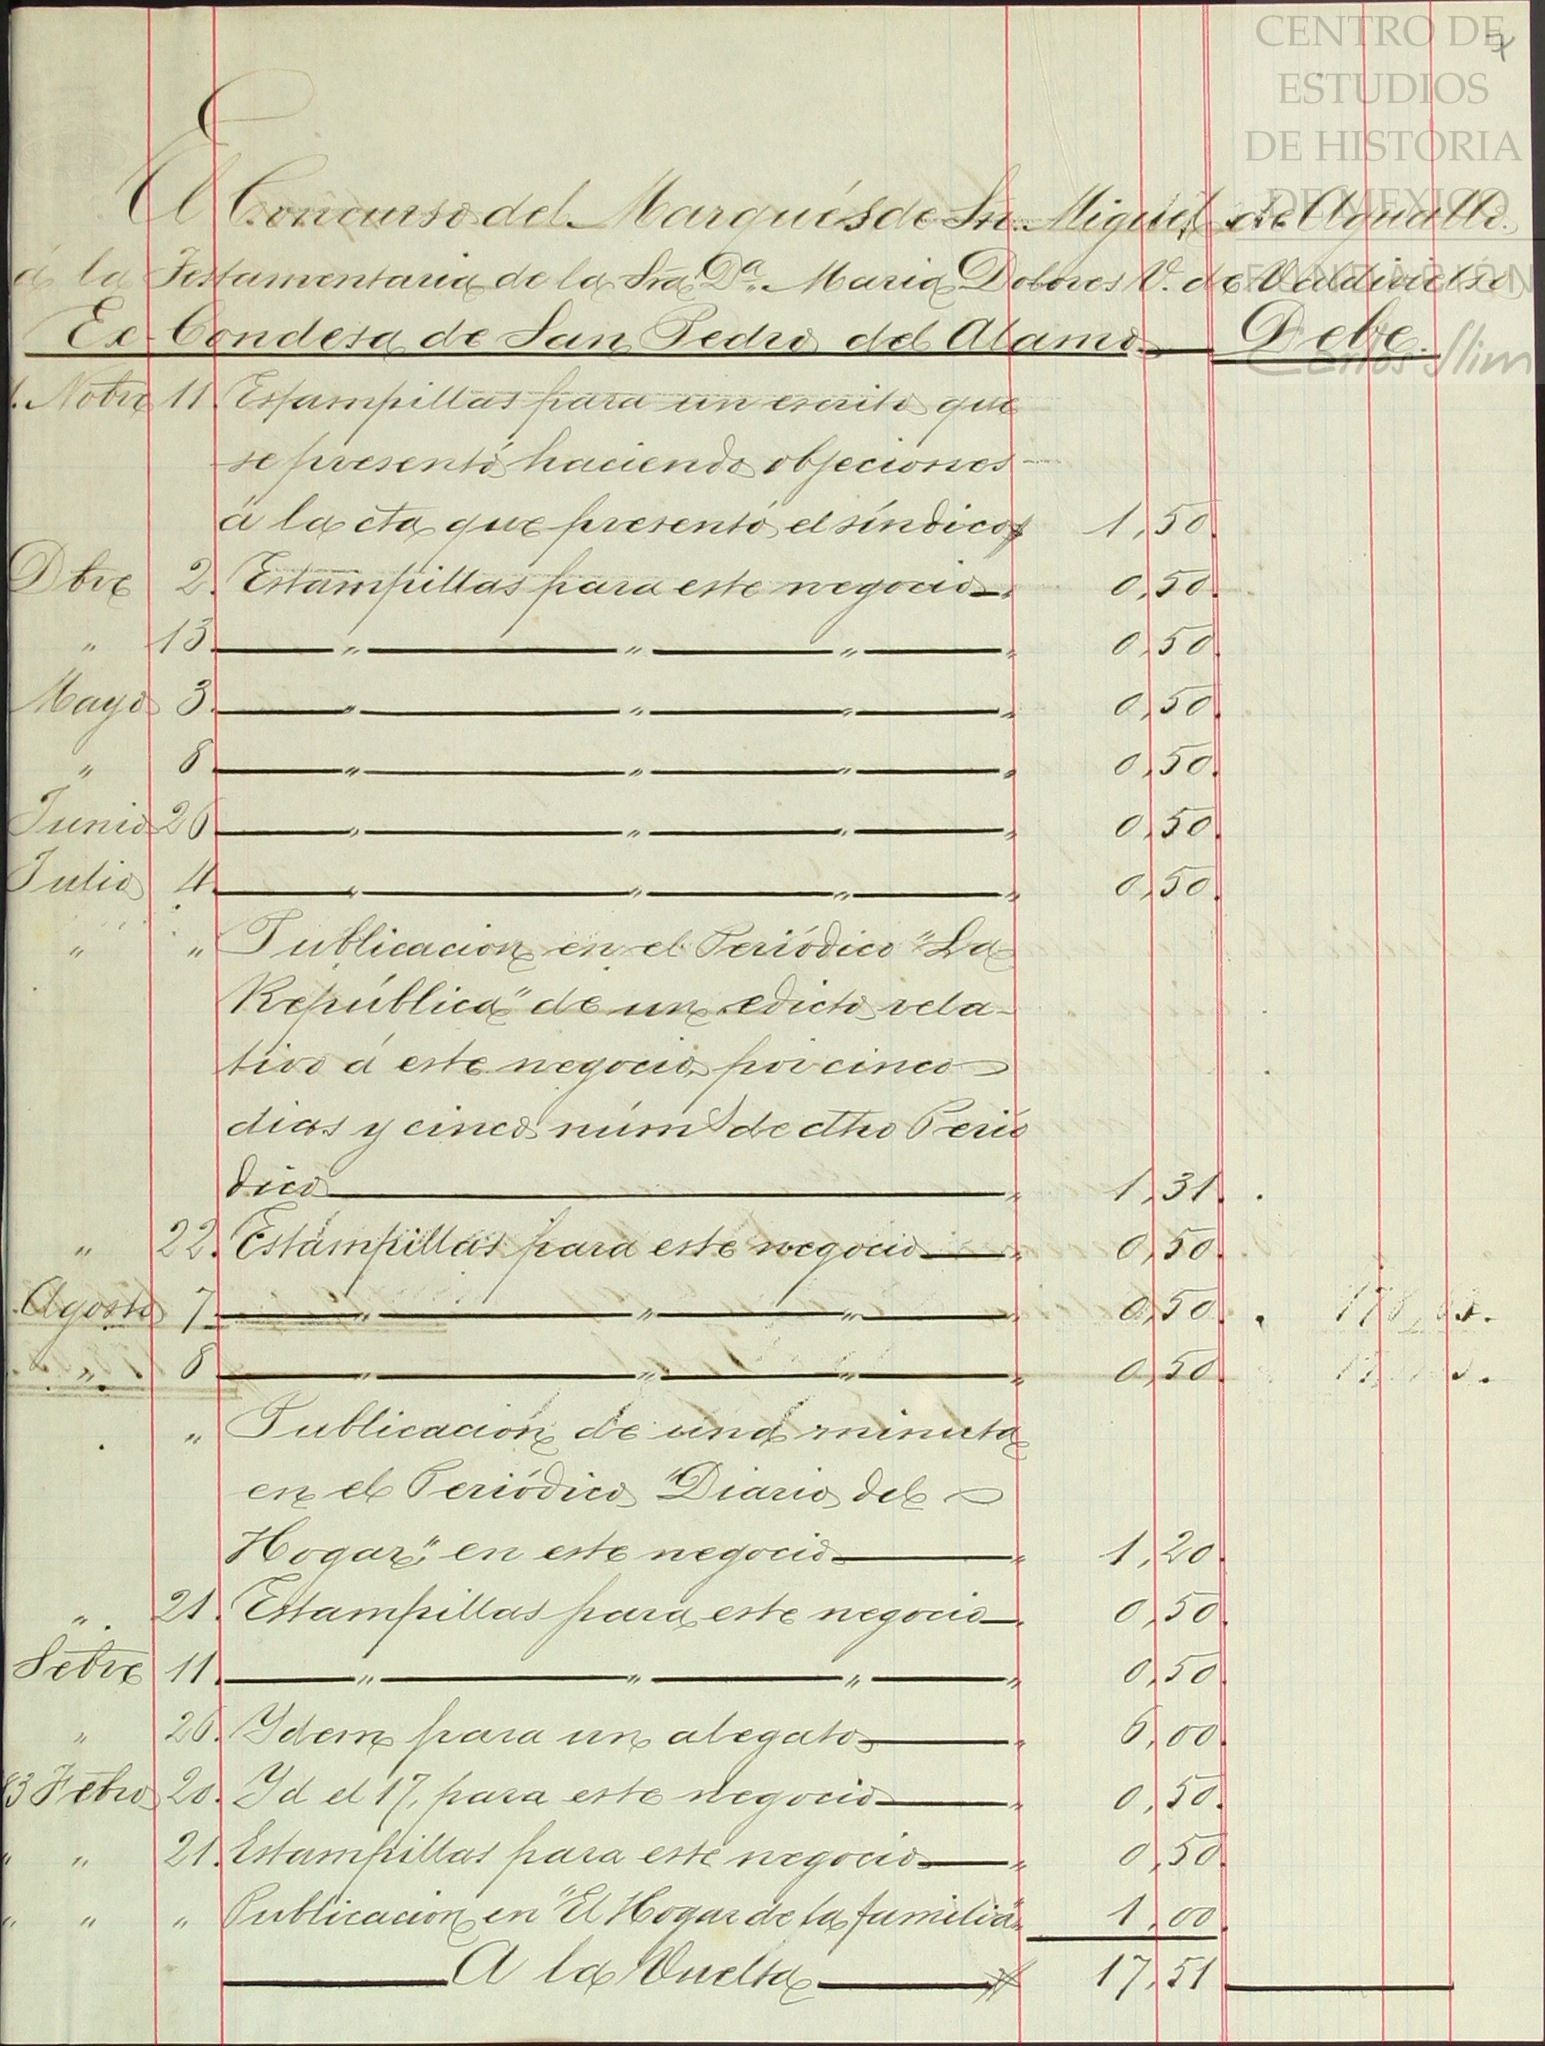 CENTRO DE
ESTUDIOS
DE HISTORIA
DE MEXICO
FUNDACIÓN
Carlos Slim
El Concurso del Marqués de Sn. Miguel de Aguallo.
á la Testamentaria de la Sra. Da. Maria Dolores V. de Valdivielso
Ex-Condesa de San Pedro del Alamo Debe.
Nobre 11. Estampillas para un escrito que
se presentó haciendo objeciones
á la cta que presentó el síndico 1,50.
Dbre 2. Estampillas para este negocio 0,50.
" 13. " " " " 0,50.
Mayo 3. " " " " 0,50.
" 8 " " " " 0,50.
Junio 26 " " " " 0,50.
Julio 4. " " " " 0,50.
" " Publicacion en el Periódico "La
República" de un edicto rela-
tivo á este negocio, por cinco
dias y cinco núms de dho Perió
dico " 1,31.
" 22. Estampillas para este negocio " 0,50.
Agosto 7. " " " " 0,50.
" 8 " " " " 0,50.
" Publicación de una minuta
en el Periódico "Diario del
Hogar", en este negocio " 1,20.
" 21. Estampillas para este negocio 0,50.
Setbre 11. " " " " 0,50.
" 26. Ydem para un alegato " 6,00.
83 Febro 20. Yd el 17, para este negocio " 0,50.
" " 21. Estampillas para este negocio " 0,50.
" " " Publicacion en "El Hogar de la familia" 1,00.
A la Vuelta 17,51